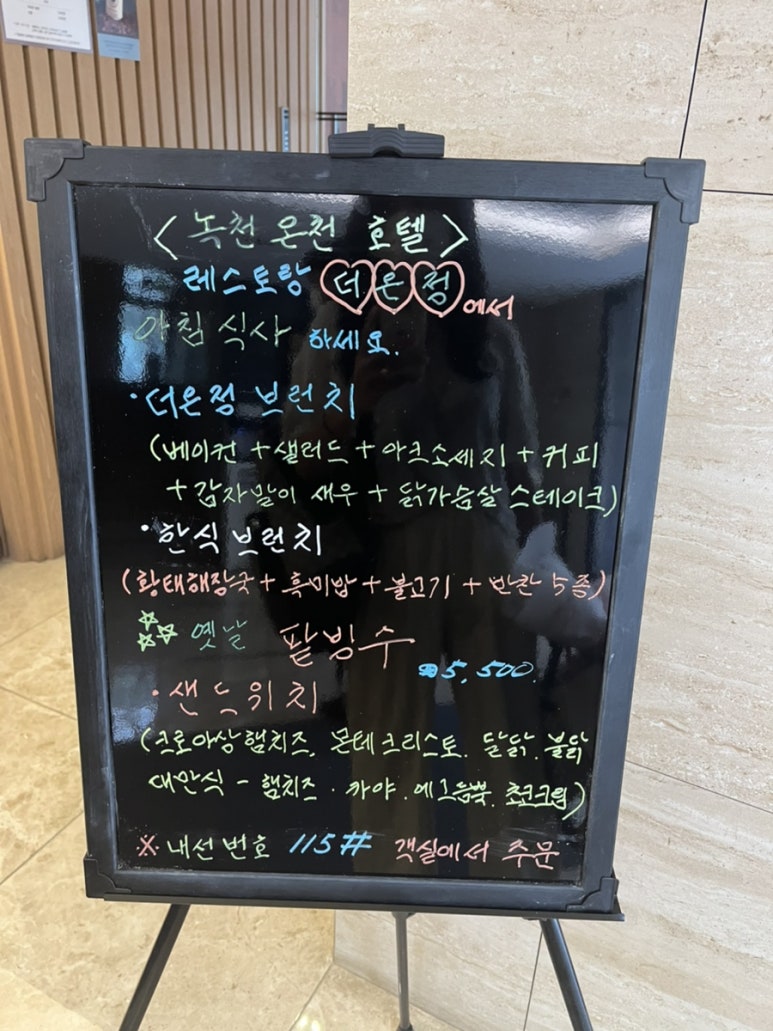 <녹천 온천 호텔>
레스토랑 더은정에서
아침 식사 하세요.
·더은정 브런치
(베이컨+샐러드+아크소세지+커피
+감자말이 새우+닭가슴살 스테이크)
·한식 브런치
(황태해장국+흑미밥+불고기+반찬 5종)
옛날 팥빙수
5,500
·샌드위치
(크로아상햄치즈, 몬테크리스토. 달닭. 불닭
대만식-햄치즈·카야.에그듬뿍. 초코크림)
※ 내선번호 115# 객실에서 주문